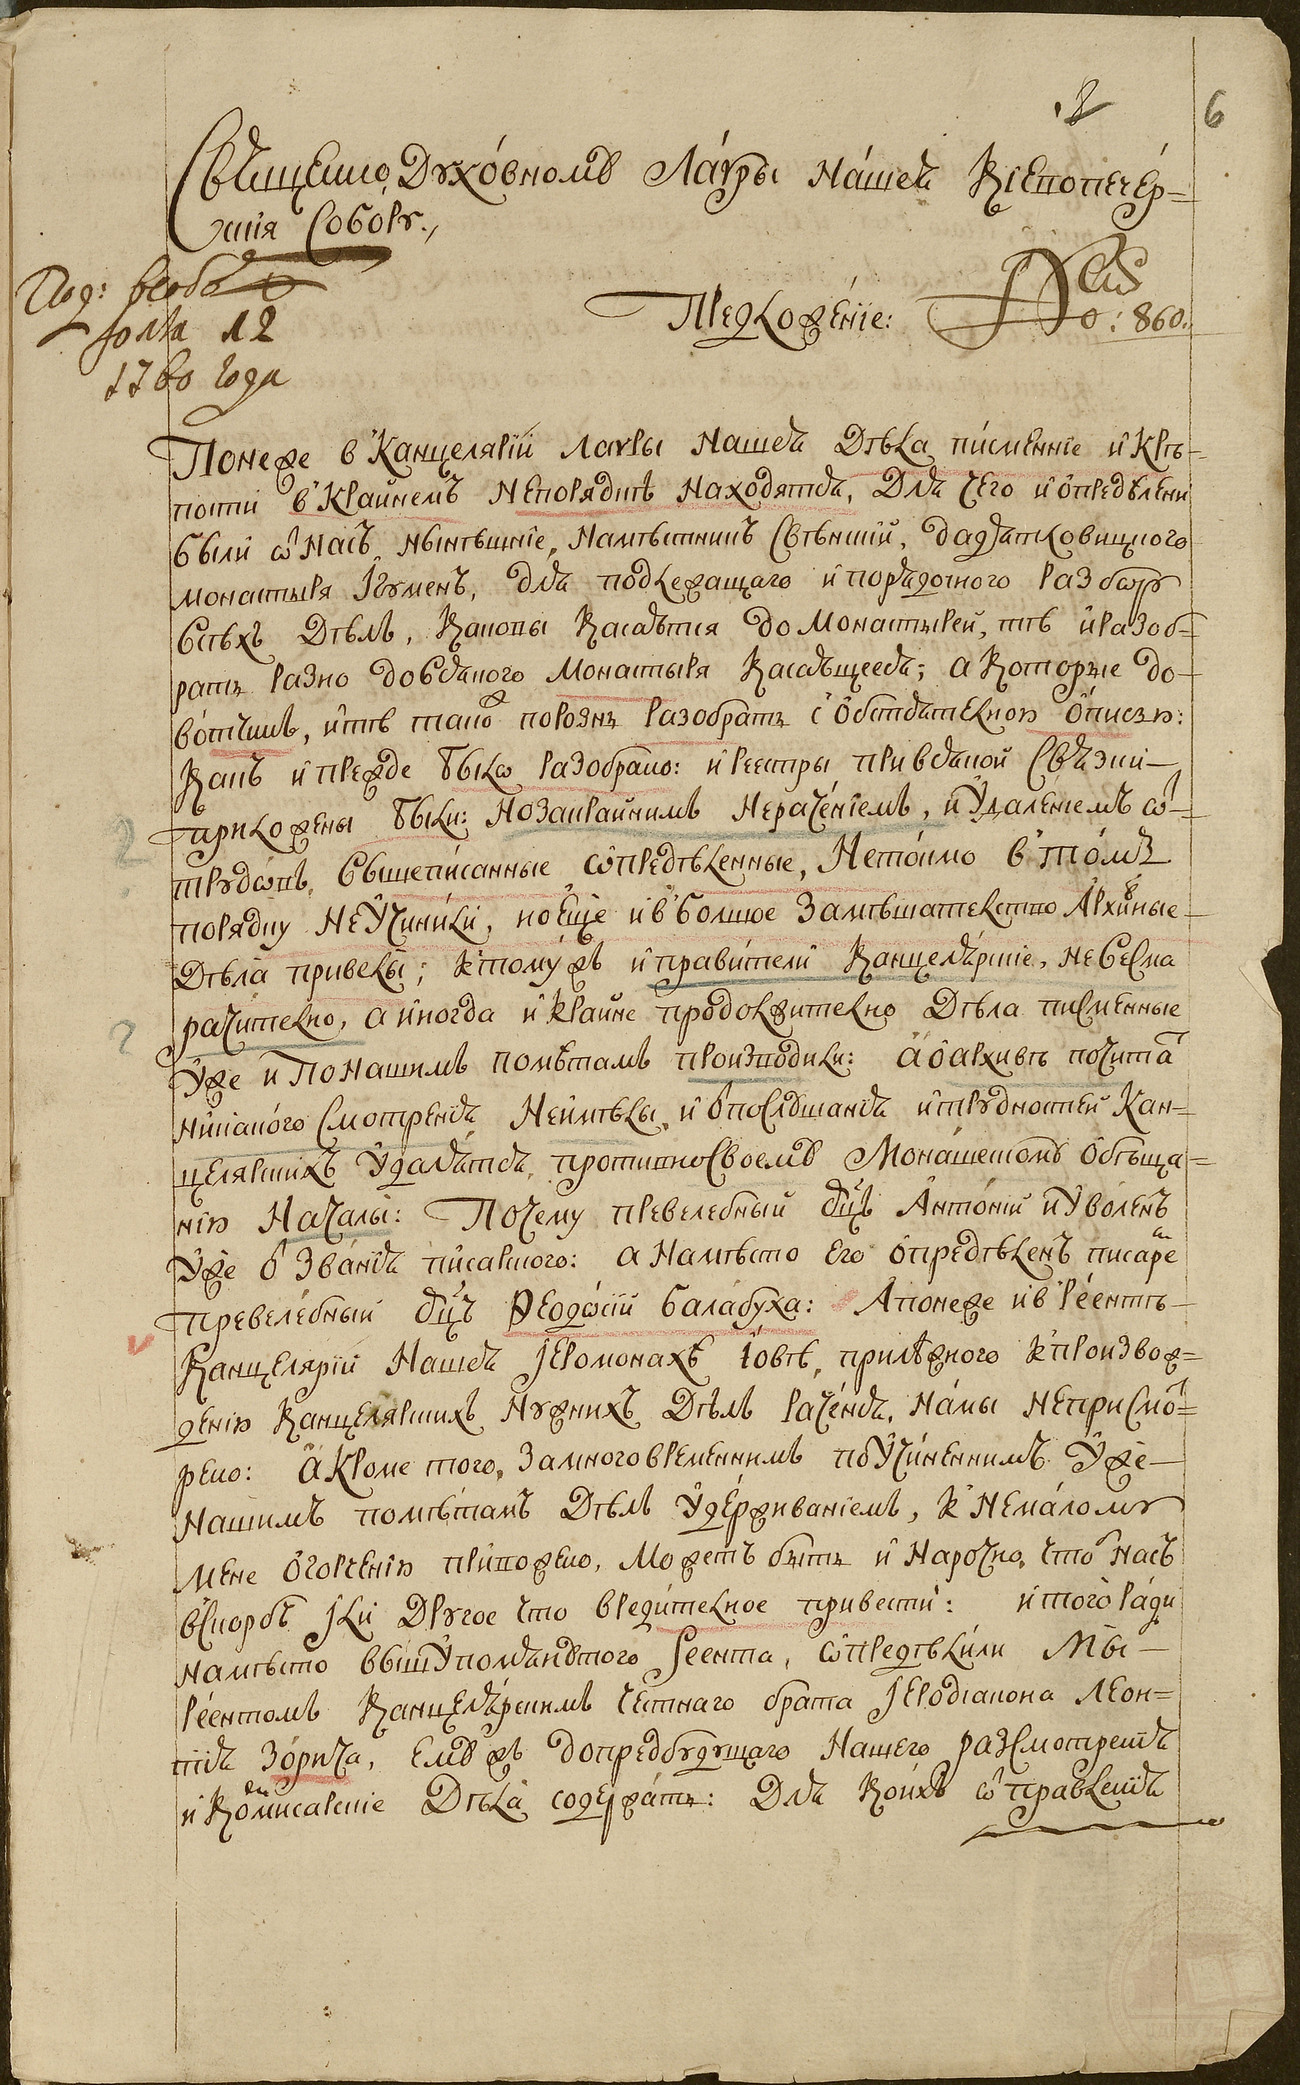 6
Свѧщенно Духо́вному Ла́ѵры На́шеѧ Кіевопече́р=
скія Собору.,
Под: всобо
Юлѧ 12
1760 Года
Предложе́ніе:
№
: 860.
Понеже в Канцелярїй Лаѵры Нашеѧ Дѣла писменніе и Крѣ-
пости в Крайнемъ Непорядкѣ Находятсѧ, Длѧ чего и ѻпредѣлени
были ѿ Насъ, нынѣшніе, Намѣстникъ Свѣнскїй, Дадѣтковицкого
монастыря Ігуменъ, длѧ подлежащаго и порѧдочного разбору
всѣхъ Дѣлъ, Каковы Касаѧтся до Монастырей, тѣ и разоб=
рать разно до всѧкого Монастыря Касаѧщеесѧ; а Которые до-
вотчинъ, и тѣ такожъ порознь разобрать с Обстоѧтелною Описью:
Какъ и прежде было разобрано: и реестры при всѧкой Свѧзки-
приложены были: Но за крайнимъ Нераче́ніемъ, и Удаленіемъ ѿ=
трудовъ, вышеписанные ѡпредѣленные, Нето́кмо в то́мъ
порядку Не Учини́ли, но Еще и в болшое Замѣшателство Архивные-
Дѣла привелы; к томужъ и правители Канцелѧрскіе, Не весма
рачително, а иногда и крайне продолжително Дѣла писменные
Уже и По Нашимъ помѣтамъ произво́дили: а о архивѣ почитай
никако́го Смотреніѧ Неимѣлы, и ѿ послушаніѧ и трудностей Кан=
целярскихъ Удалѧтсѧ, противно Своему Мона́шескому Обѣща=
нію Начали: Почему превелебный ѻ҃цъ Анто́ній и Уволенъ
Уже ѿ Зва́ніѧ писарского: а На мѣсто Его ѻпредѣленъ писаремъ
превеле́бный ѻ҃цъ Ѳеодо́сій Балабуха: А понеже и в Ре́ентѣ-
Канцелярїй Нашеѧ Іеромонахѣ Іовѣ, прилѣжного к произвож=
денію Канцелярскихъ Нужнихъ Дѣлъ раче́ніѧ, На́мы Неприсмо=
рено: а Кроме того, За многовременнимъ по Учиненнимъ Уже-
Нашимъ помѣтамъ Дѣлъ Удерживаніемъ, к Нема́лому
мене Огорченію приво́жено, Можетъ быть и Нарочно, что б Насъ
в скорбь Іли Другое что вредителное привести: и того ради
На мѣсто выш Упомѧнутого Реента, ѡпредѣлили Мы-
Ре́ентомъ Канцелѧ́рскимъ че́стнаго брата Іеродіакона Леон=
тіѧ Зо́рича, Ему жъ до предбудущаго Нашего разсмотреніѧ
и Комисарскіе Дѣла содержать: Длѧ Коихъ ѿправленіѧ